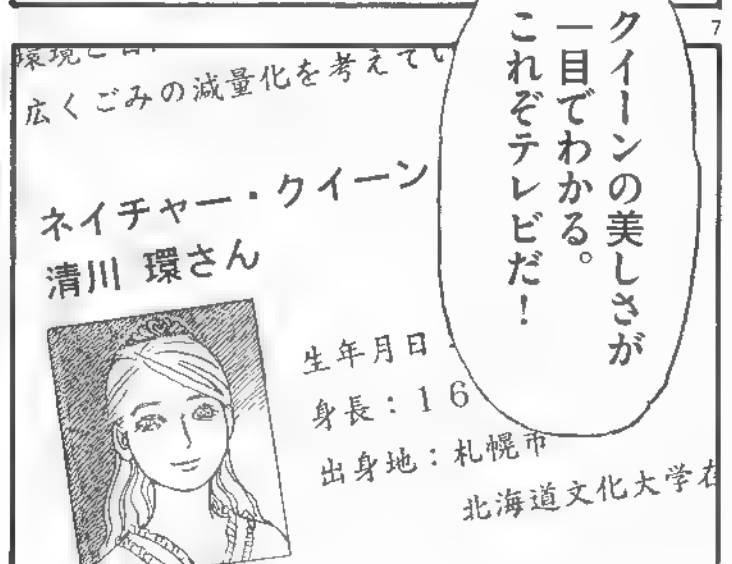 7
クイーンの美しさが
一目でわかる。
これぞテレビだ！
環境と
広くごみの減量化を考えてい
ネイチャー・クイーン
清川 環さん
生年月日
身長：16
出身地：札幌市
北海道文化大学在